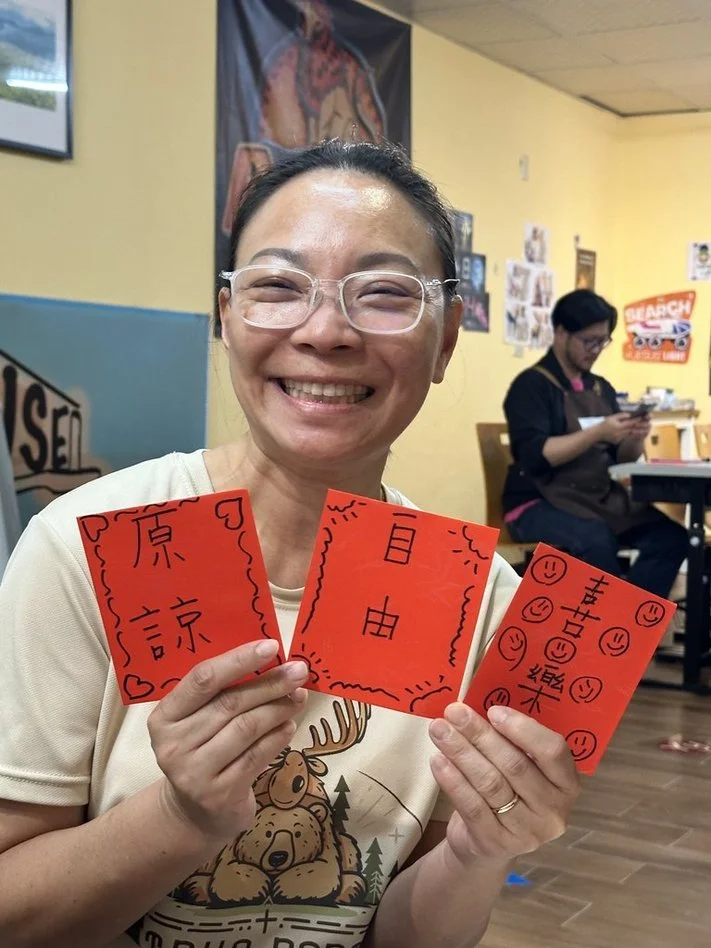 原諒
自由
喜樂
SEARCH